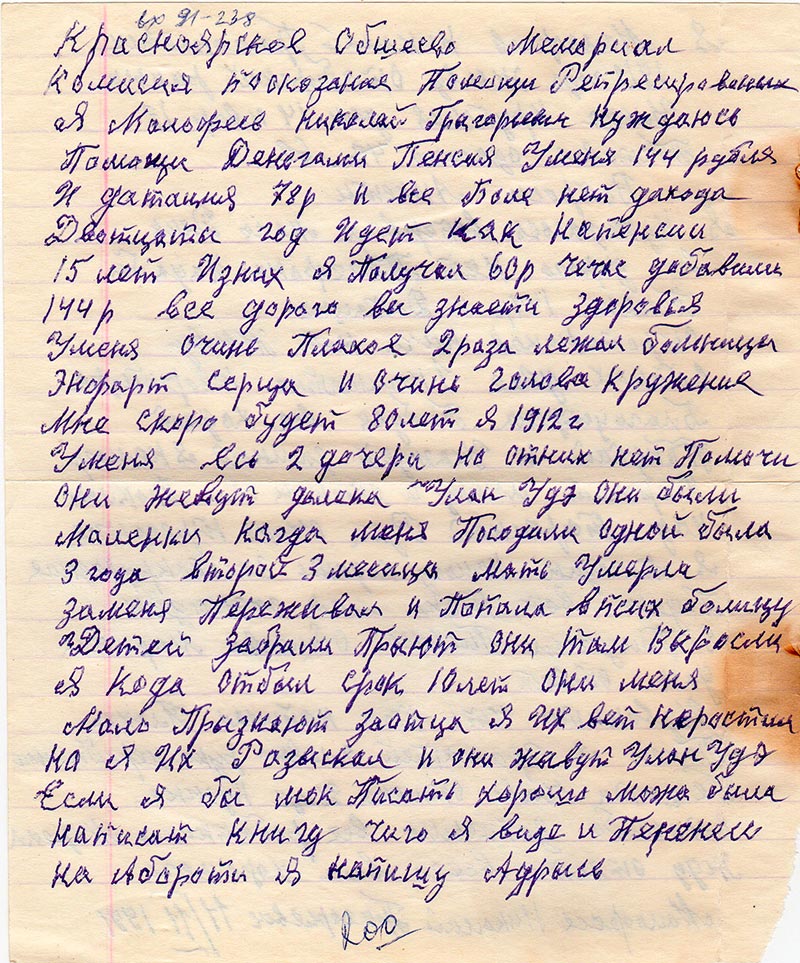 вх 91-238
Красноярское Общево Мемориал
Комисия пооказания Помощи Репресированых
Я Малофеев Николай Григориевич нуждаюсь
Помощи Деньгами Пенсия Уменя 144 рубля
И датация 78р и все Боле нет дахода
Двотцаты год Идет как напенсии
15 лет Изних я Получал 60р чечас дабавили
144р все дорого вы знаети здоровья
Уменя очинь Плахое 2 раза лежал болницы
Энфаркт серца и очинь голова кружение
мне скоро будет 80 лет я 1912 г
Уменя есь 2 дочери но отних нет Помочи
они живут далека Улан Удэ они были
Маленки кагда меня Посодили одной была
3 года второй 3 месяца мать Умерла
заменя Переживая и Попала в псих болницу
Детей забрали Прыют они там выросли
Я кода отбыл срок 10 лет они меня
мало Прызнают заатца я их вет нерастил
на я их Разыскал и они живут Улан Удэ
Если я бы мок Писать хорошо можа была
написат книгу чиго я виде и Перенес
на Абароти я напишу Адрысь
200